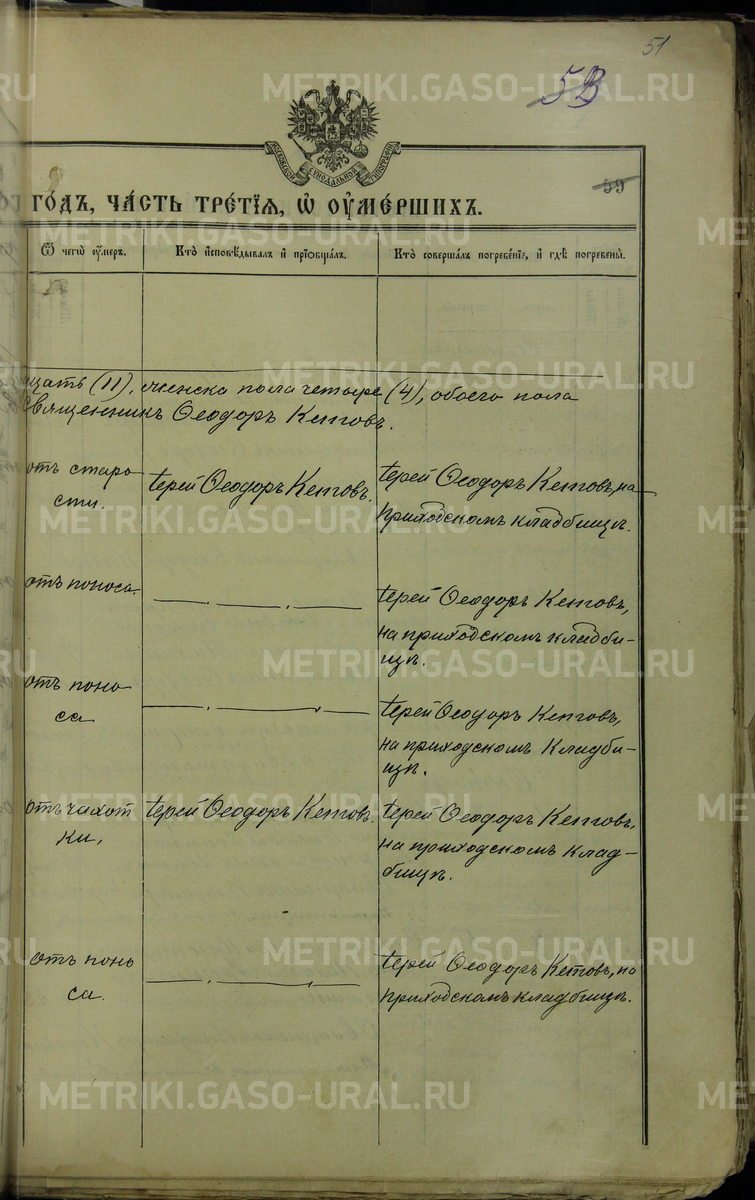 51
5В
59
МОСКОВСКОЙ СУНОДАЛЬНОЙ ТИПОГРАФІИ
ГОДЪ, ЧАСТЬ ТРЕТІЯ, Ѡ ОУМЕРШИХЪ.
Ѿ чегѡ оумеръ.
Кто исповѣдывалъ и пріобщалъ.
Кто совершалъ погребеніе, и гдѣ погребены.
цать (11), женска пола четыре (4), обоего пола
Священникъ Ѳеодоръ Кетовъ.
отъ старо
сти.
Іерей Ѳеодоръ Кетовъ.
Іерей Ѳеодоръ Кетовъ, на
приходскомъ кладбищѣ.
отъ поноса.
Іерей Ѳеодоръ Кетовъ,
на приходскомъ кладби-
щѣ.
отъ поно
са
Іерей Ѳеодоръ Кетовъ,
на приходскомъ кладби-
щѣ.
отъ чахот
ки.
Іерей Ѳеодоръ Кетовъ.
Іерей Ѳеодоръ Кетовъ,
на приходскомъ клад-
бищѣ.
отъ поно
са.
Іерей Ѳеодоръ Кетовъ, на
приходскомъ кладбищѣ.
METRIKI.GASO-URAL.RU